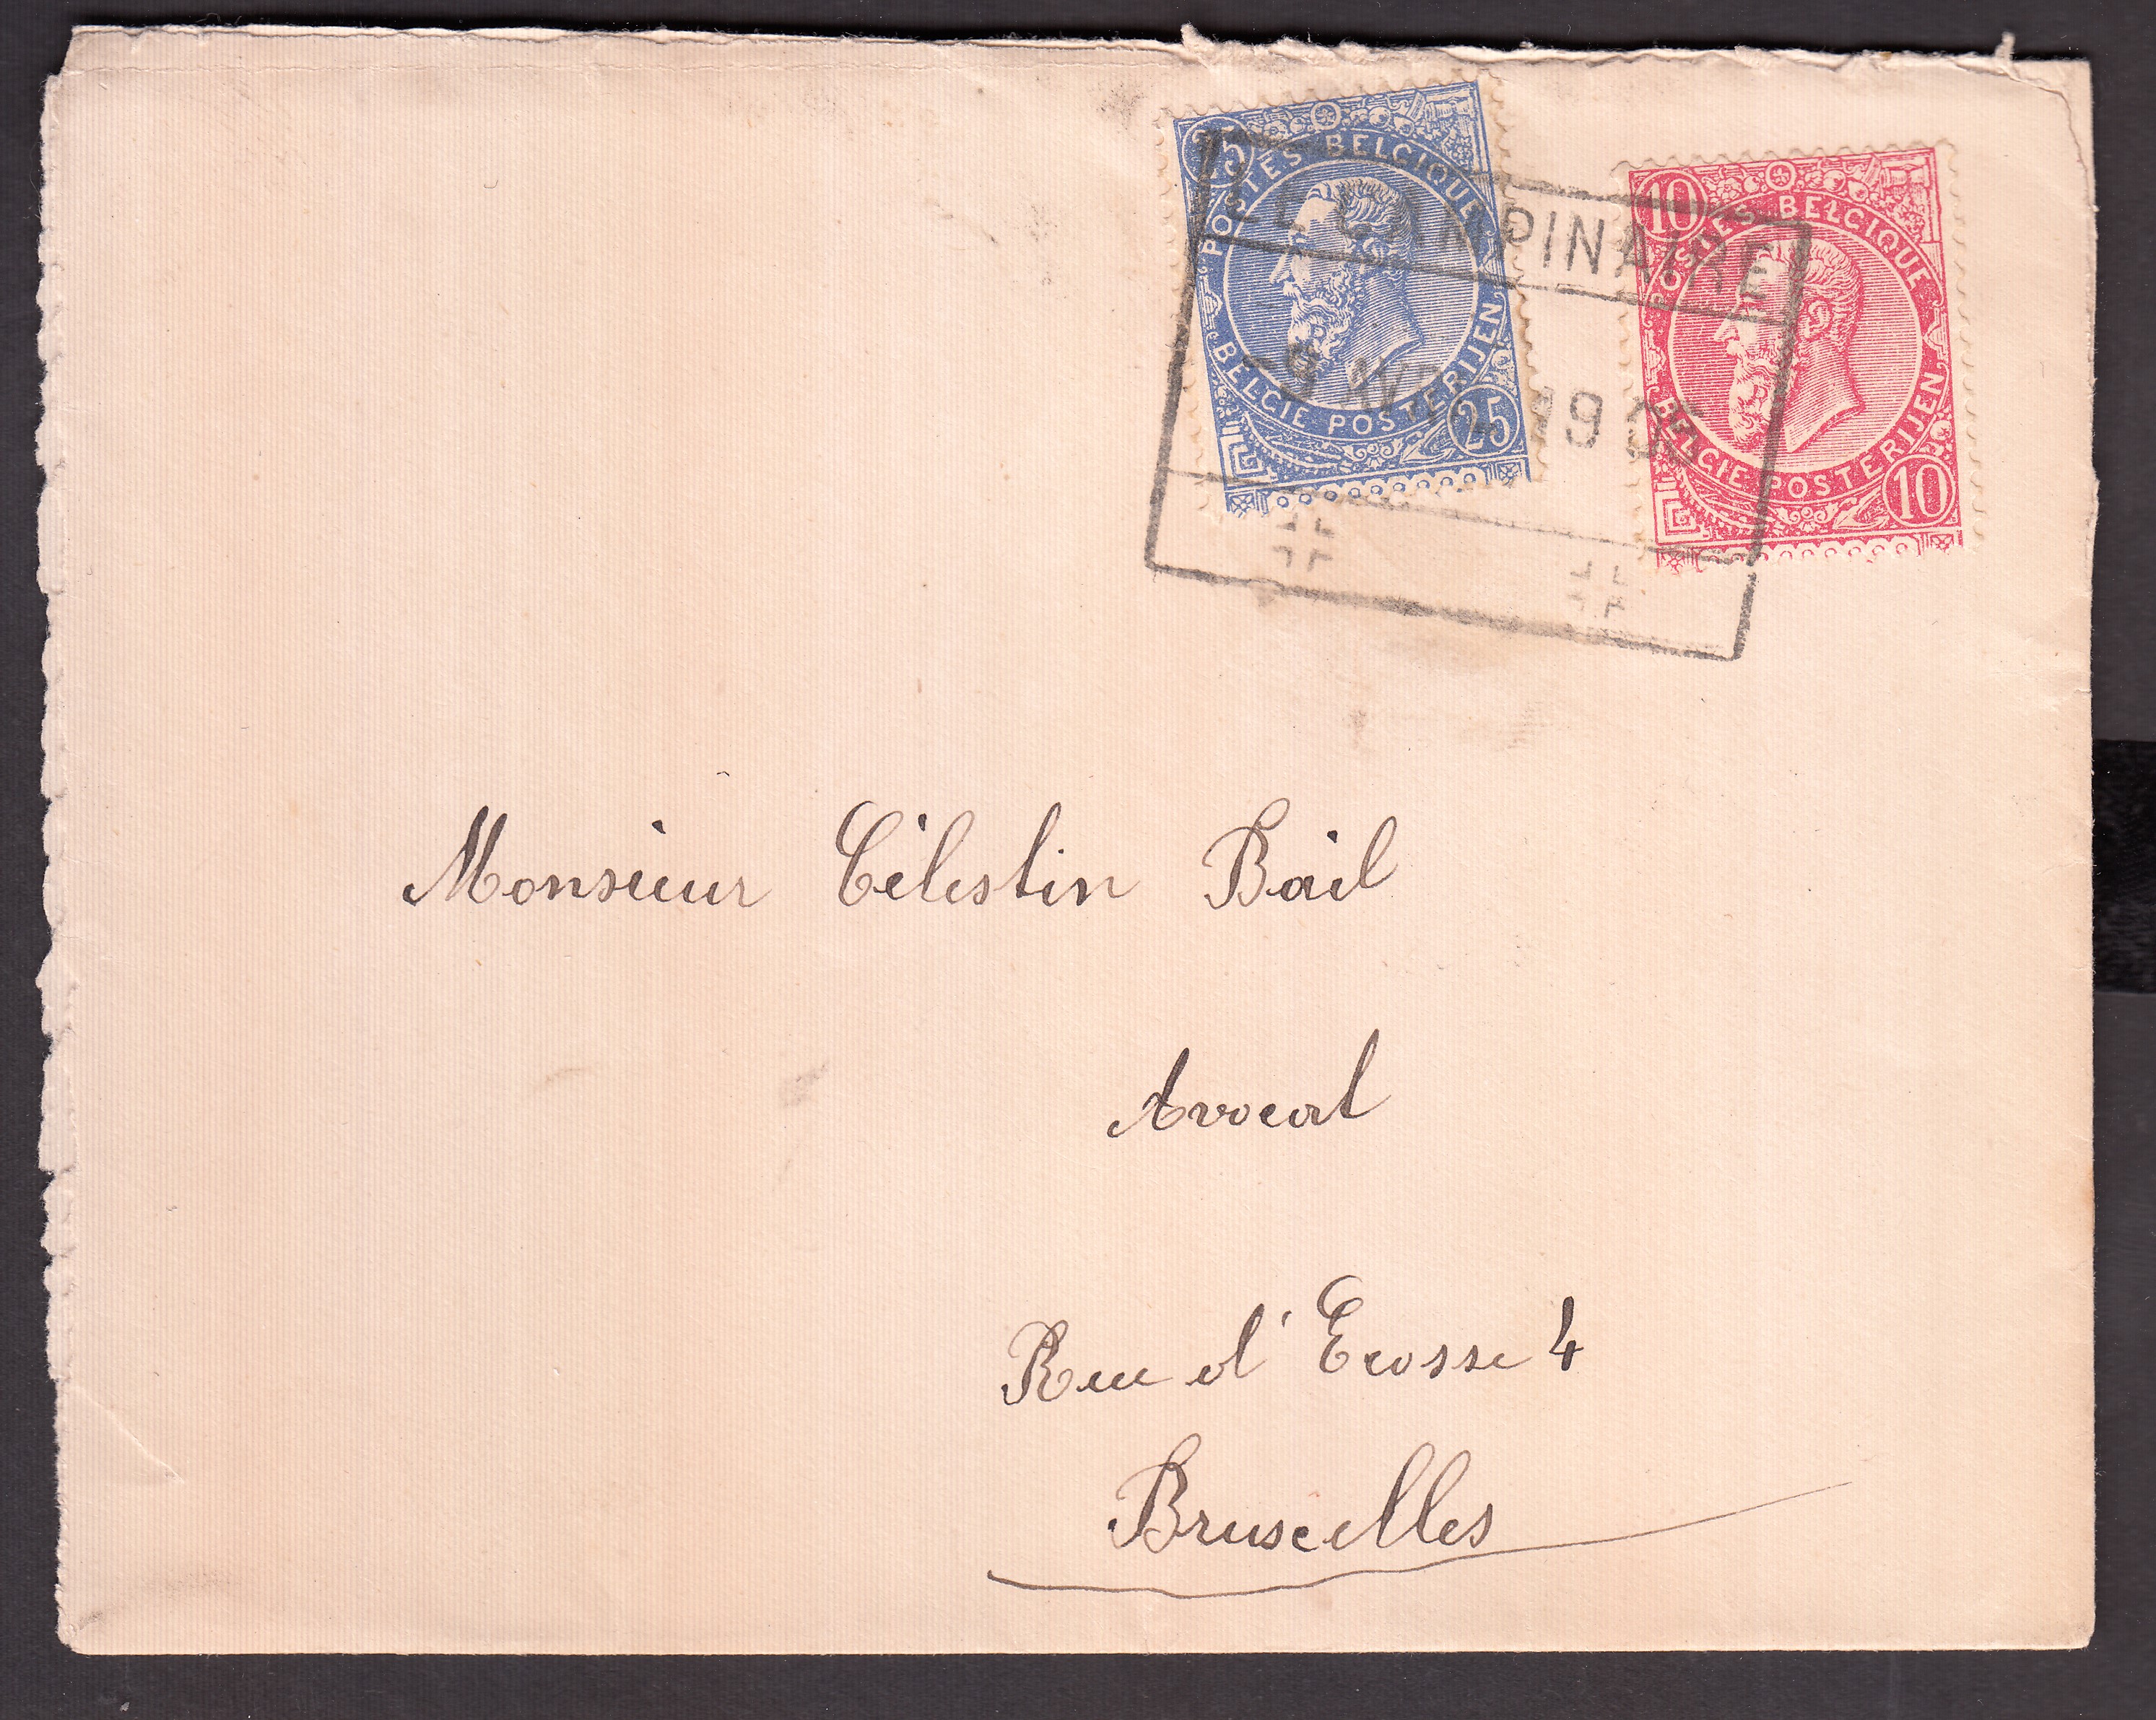 25
POSTES BELGIQUE
BELGIE POSTERIJEN
25
10
POSTES BELGIQUE
BELGIE POSTERIJEN
10
LE CAMPINAIRE
-9 AVRIL
Monsieur Célestin Bail
Avocat
Rue d'Ecosse 4
Bruxelles